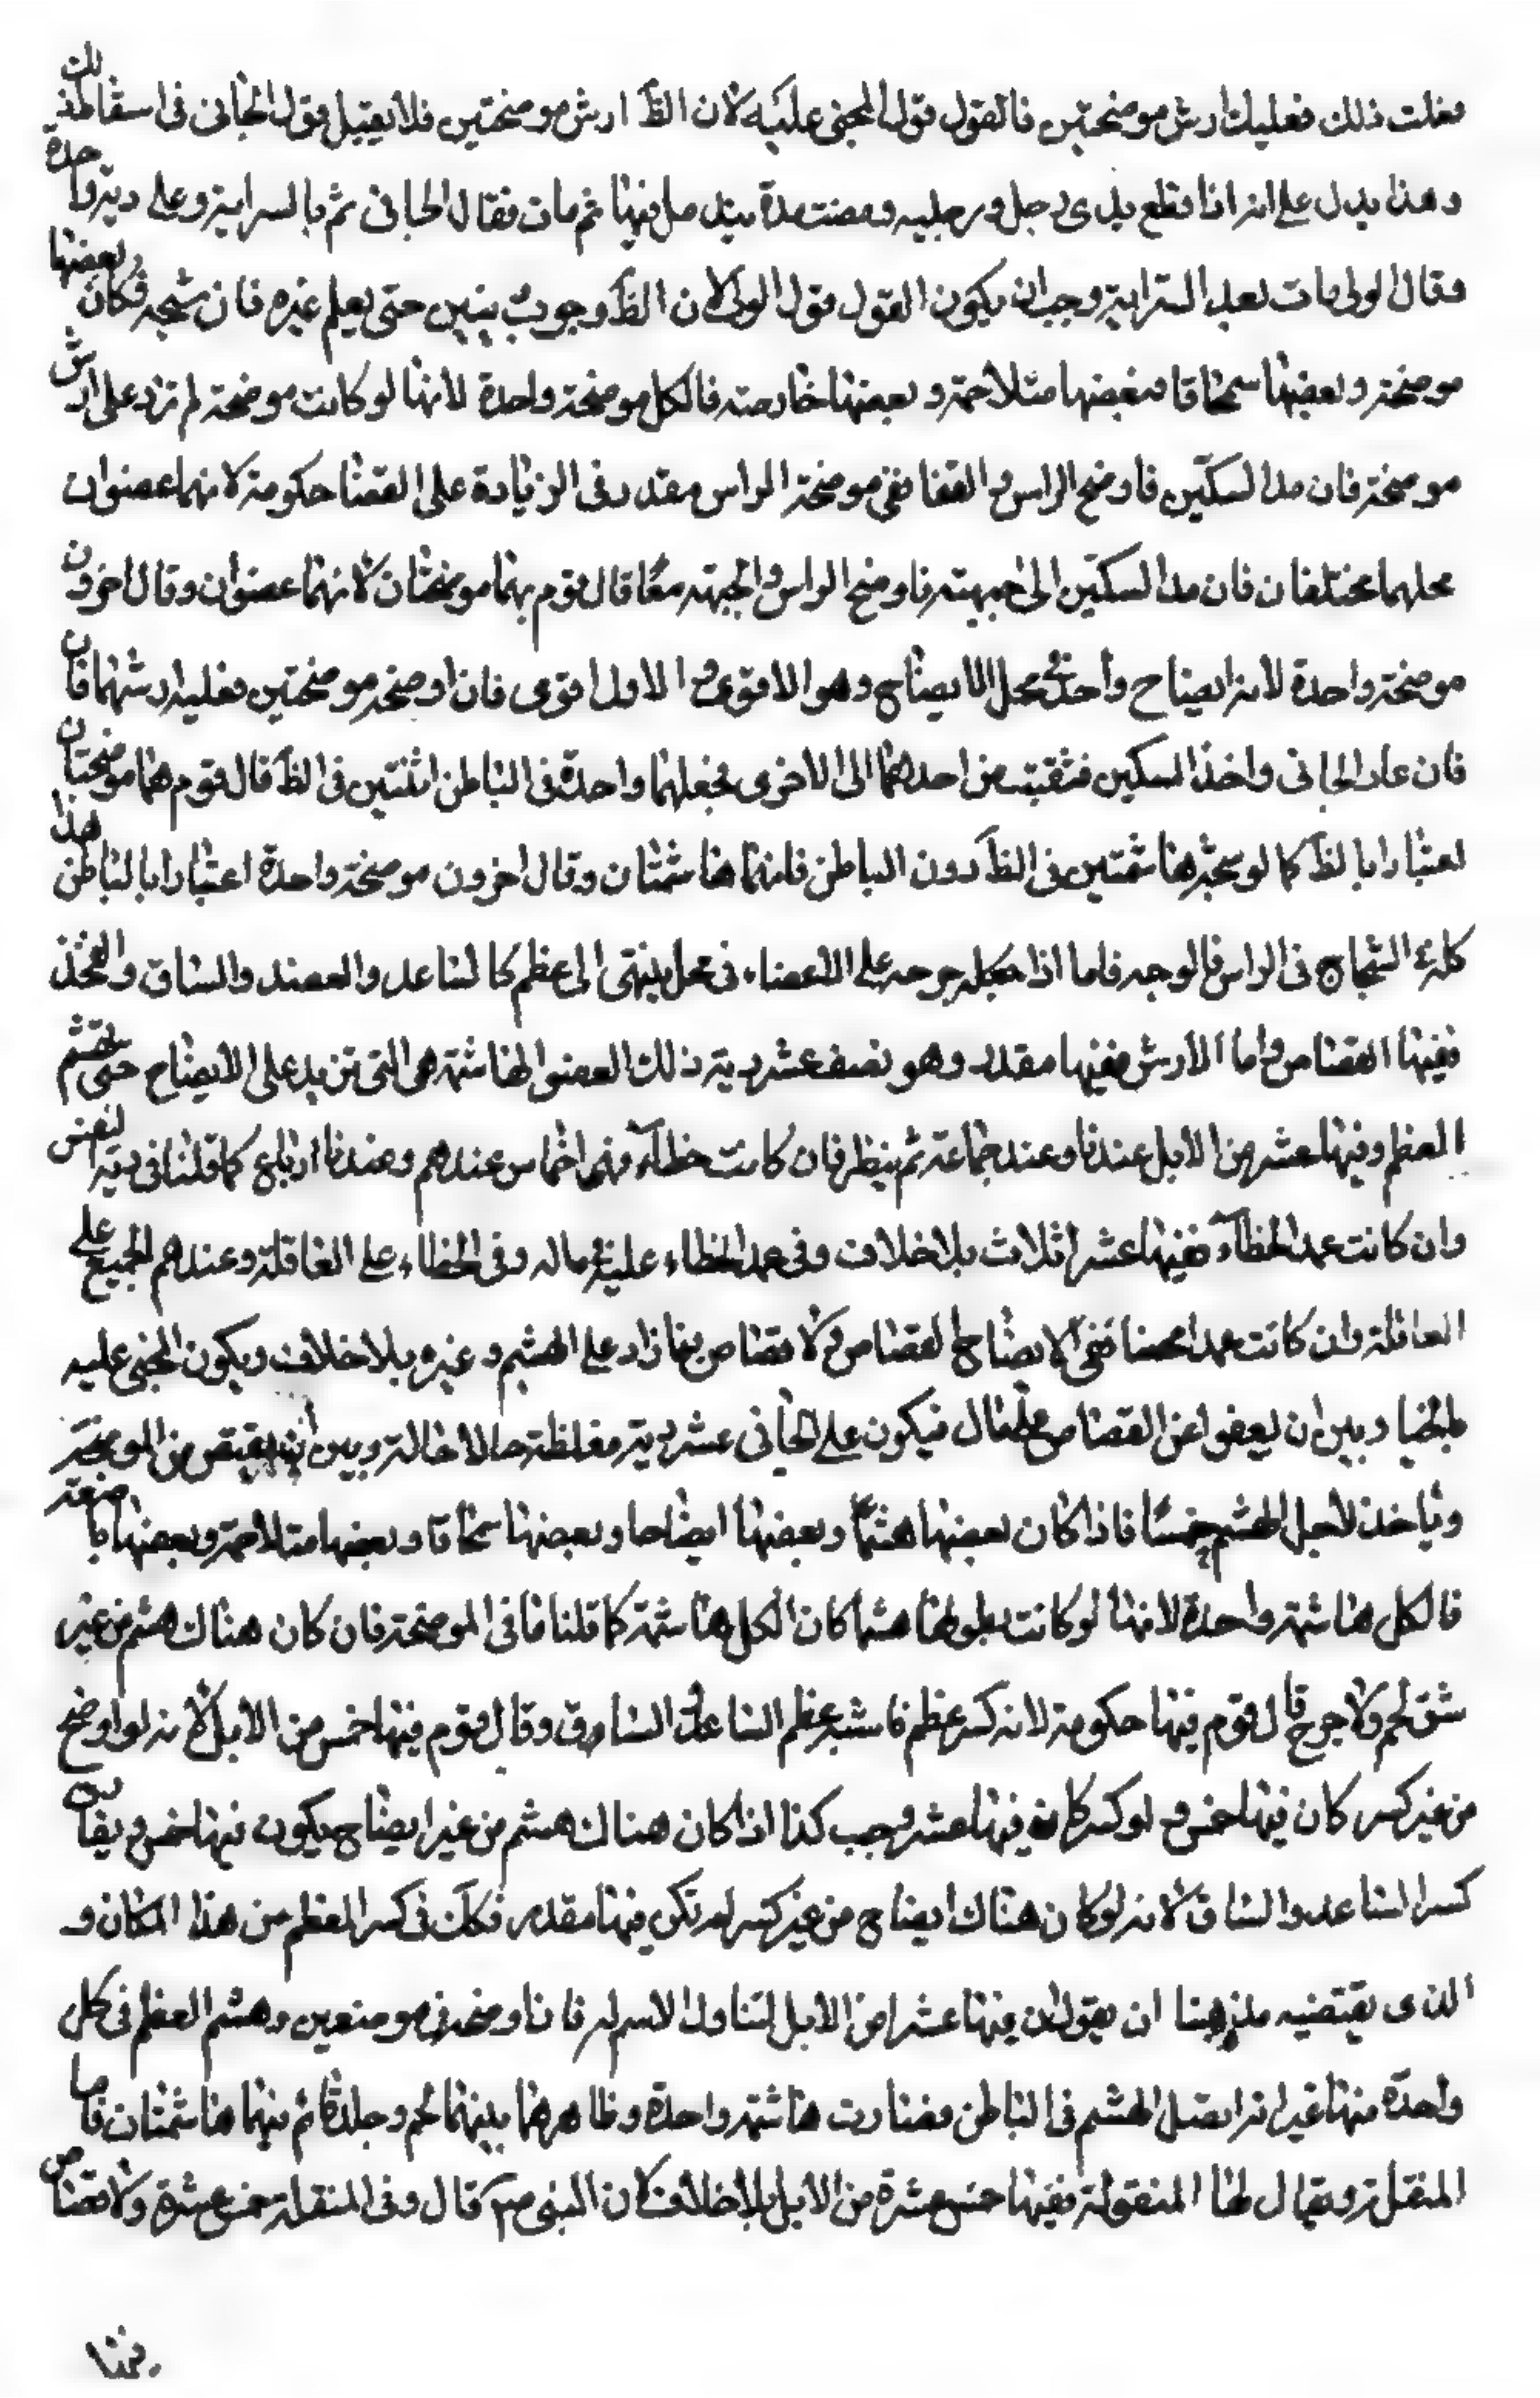 فعلت ذلك فعليك ارش موضحتين فالقول قول المجنى عليه لان الظَ ارش موضحتين فلا يقبل قول الجانى فى اسقاط ذلك
وهذا يدل على انه اذا قطع يدى رجل ورجليه ومضت مدة يندمل فيها ثم مات فقال الجانى ثم بالسراية وعلى دية واحدة
وقال الولى مات بعد السراية وجب ان يكون القول قول الولى لان الظَ وجوب ديتين حتى يعلم غيره فان شجه فكان بعضها
موضحة وبعضها سمحاقا وبعضها متلاحمة وبعضها خارصة فالكل موضحة واحدة لانها لو كانت موضحة لم تزد على ارش
موضحة فان مد السكين فاوضح الراس و القفا ففى موضحة الراس مقدر وفى الزيادة على القفا حكومة لانهما عضوان
محلهما مختلفان فان مد السكين الى جبهته فاوضح الراس والجبهة معًا قال قوم بهما موضحتان لانهما عضوان وقال اخرون
موضحة واحدة لانه ايضاح واحد فى محل الايضاح وهو الاقوى و الاول اقوى فان اوضحه موضحتين فعليه ارشهما فان
فان عاد الجانى واخذ السكين فثقبته من احدهما الى الاخرى فجعلهما واحدة فى الباطن اثنتين فى الظَ قال قوم هما موضحتان
اعتبارا بالظَ كما لو شجه هاشمتين فى الظَ دون الباطن فانهما هاشمتان وقال اخرون موضحة واحدة اعتبارا بالباطن هذا
كله فى الشجاج فى الراس والوجه فاما اذا جعله جرحه على الاعضاء فى محل ينتهى الى عظم كالساعد والعضد والساق والفخذ
ففيها القصاص واما الارش ففيها مقدر وهو نصف عشر دية ذلك العضو الهاشمة هى التى تزيد على الايضاح حتى تهشم
العظم وفيها عشر من الابل عندنا وعند جماعة ثم ينظر فان كانت خطاءً فهى اخماس عندهم وعندنا ارباع كما قلنا فى دية النفس
وان كانت عمد الخطاء ففيها عشر اثلاث بلا خلاف وفى عمد الخطاء عليه فى ماله وفى الخطاء على العاقلة وعندهم الجميع على
العاقلة وان كانت عمدا محضا ففى الايضاح القصاص و لا قصاص فيما زاد على الهشم و غيره بلا خلاف ويكون المجنى عليه
بالخيار بين ان يعفوا عن القصاص على مال فيكون على الجانى عشر دية مغلظة حالا فى ماله وبين ان يقتص من الموضحة
وياخذ لاجل الهشم خمسًا فاذا كان بعضها هشما وبعضها ايضاحا وبعضها سمحاقا وبعضها متلاحمة وبعضها باضعة
فالكل هاشمة واحدة لانها لو كانت بطولها هشما كان الكل هاشمة كما قلنا فى الموضحة فان كان هناك هشم من غير
شق لحم ولا جرح قال قوم فيها حكومة لانه كسر عظم فاشبه عظم الساعد والساق وقال قوم فيها خمس من الابل لانه لو اوضح
من غير كسر كان فيها خمس و لو كسر كان فيها عشر وجب كذا اذا كان هناك هشم من غير ايضاح يكون فيها خمس ويفارق
كسر الساعد والساق لانه لو كان هناك ايضاح من غير كسر لم تكن فيها مقدر فكك فى كسر العظم من هذا المكان و
الذى يقتضيه مذهبنا ان يقول ان فيها عشرا من الابل لتناول الاسم له فان اوضحه فى موضعين وهشم العظم فى كل
واحدة منها غير انه اتصل الهشم فى الباطن فصارت هاشمة واحدة وظاهرهما بينهما لحم وجلد قائم فيهما هاشمتان فاما
المنقلة ويقال لها المنقولة ففيها خمس عشرة من الابل بلا خلاف لان النبى ص قال وفى المنقلة خمس عشرة ولا قصاص
فيها